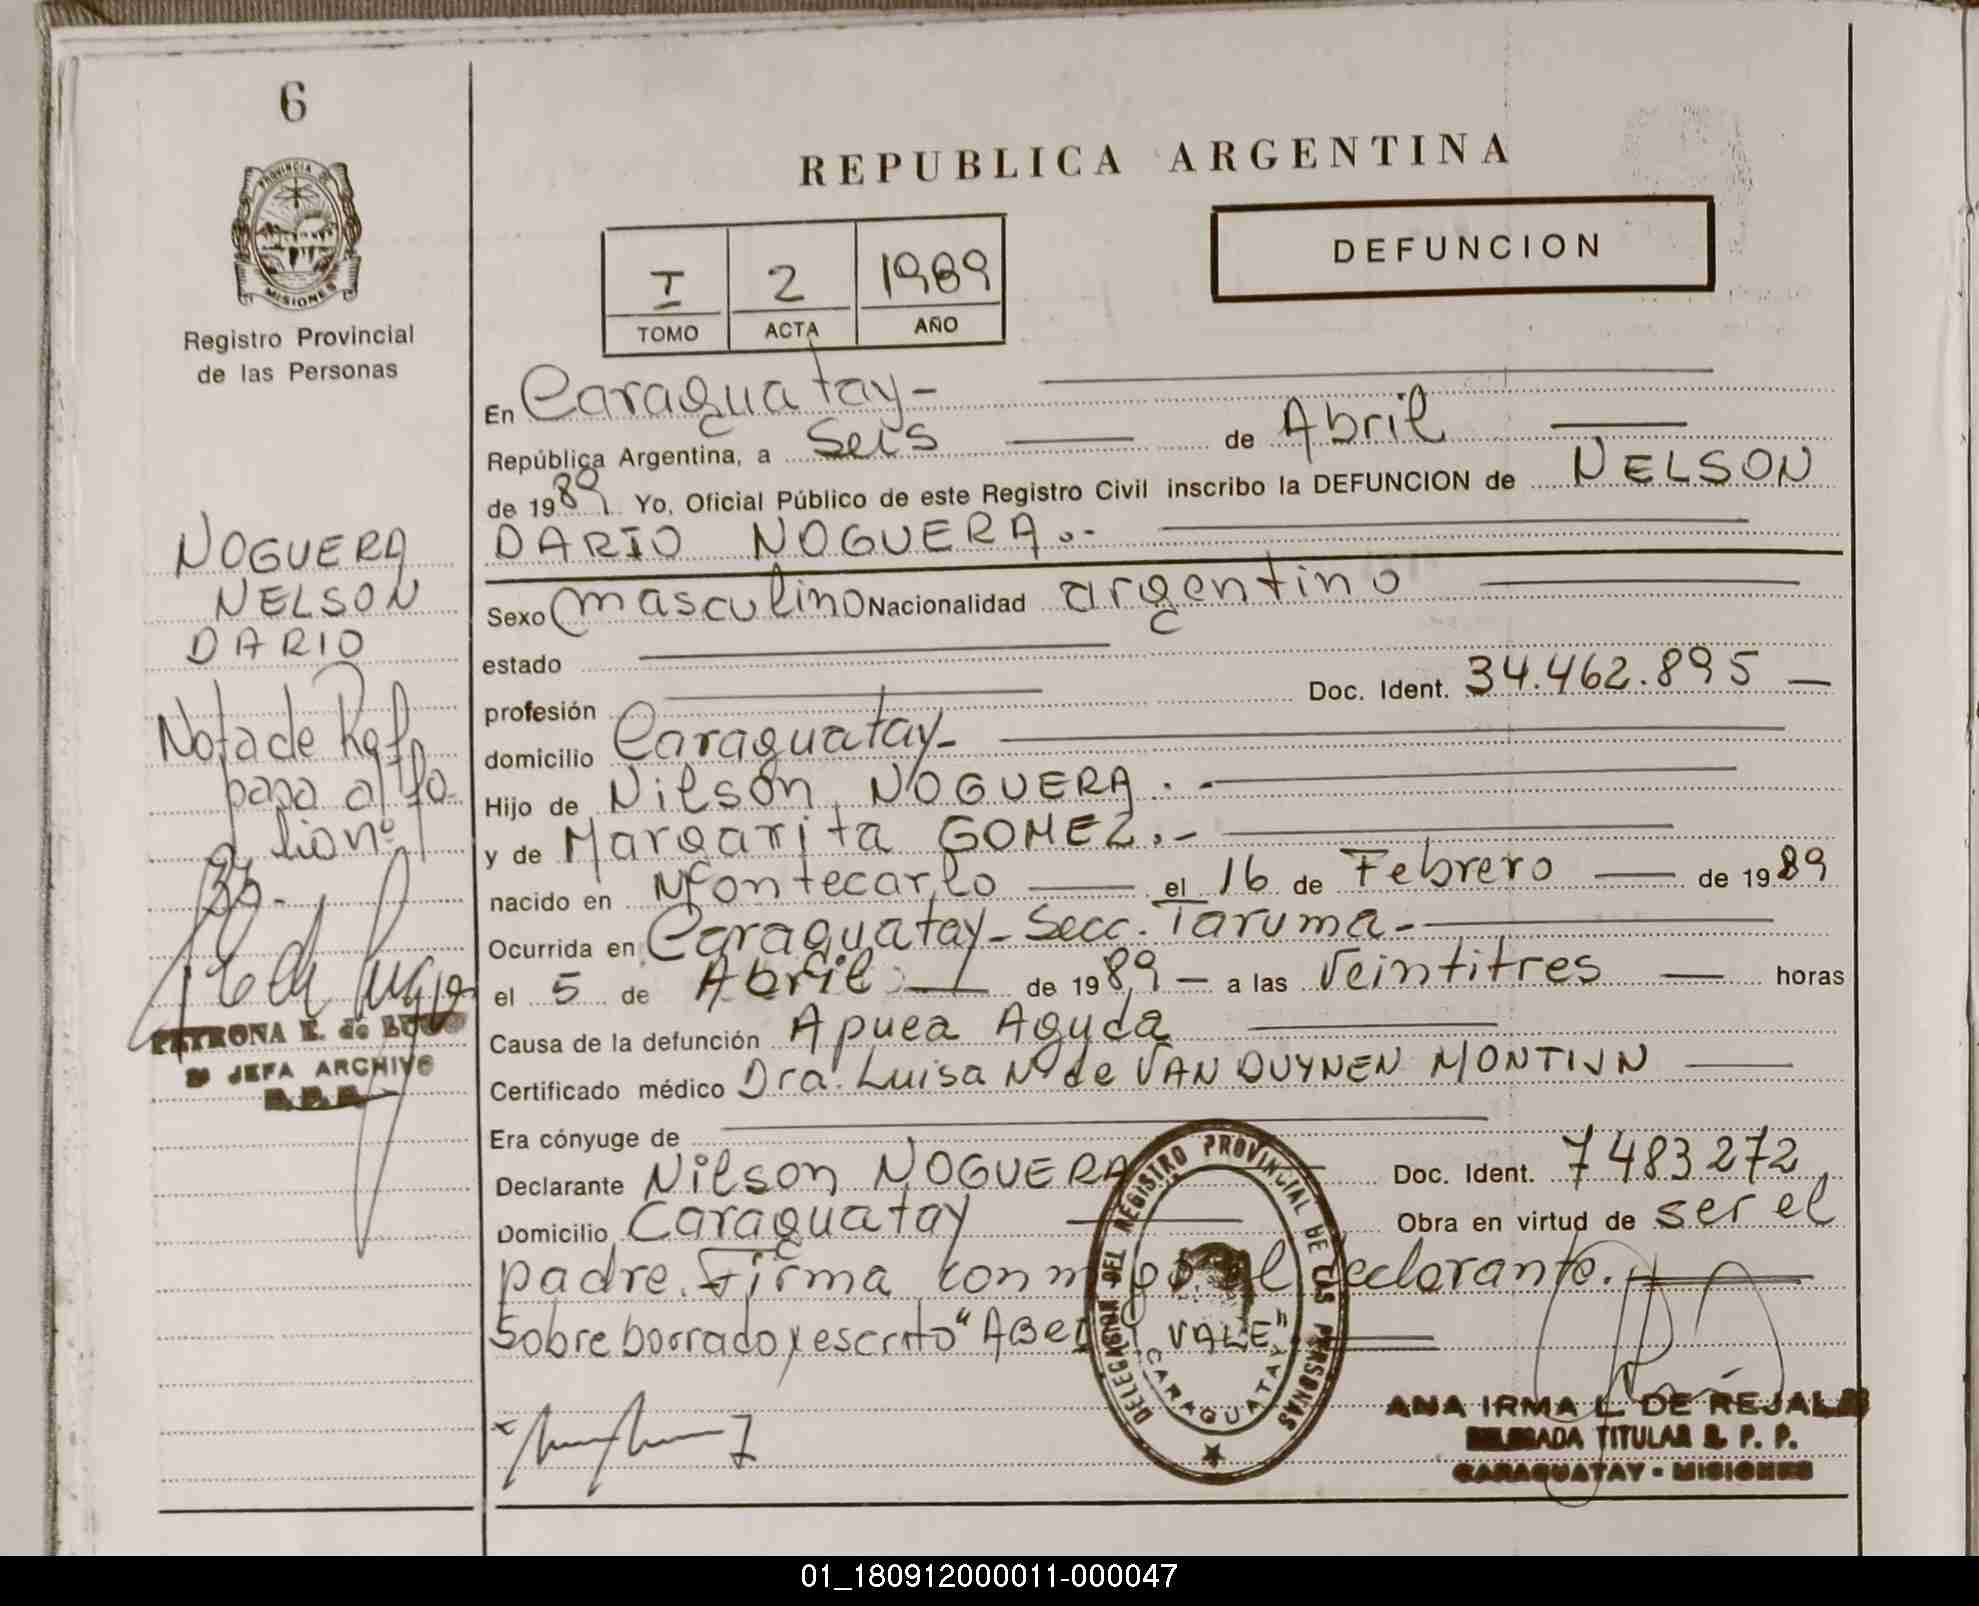 6
PROVINCIA DE
MISIONES
Registro Provincial
de las Personas
NOGUERA
NELSON
DARIO
Nota de
REPUBLICA ARGENTINA
DEFUNCION
I 2 1989
TOMO ACTA AÑO
En Caraguatay-
República Argentina, a Seis de Abril
de 1989. Yo, Oficial Público de este Registro Civil inscribo la DEFUNCION de NELSON
DARIO NOGUERA.-
Sexo masculino Nacionalidad argentino
estado
profesión Doc. Ident. 34.462.895
domicilio Caraguatay-
Hijo de Nilson NOGUERA.-
y de Margarita GOMEZ.-
nacido en Montecarlo el 16 de Febrero de 1989
Ocurrida en Caraguatay- Secc. Taruma-
el 5 de Abril de 1989 a las Veintitres horas
Causa de la defunción Apuea Aguda
Certificado médico Dra. Luisa N de VAN DUYNEN MONTIJN
Era cónyuge de
Declarante Nilson NOGUERA Doc. Ident. 7483272
Domicilio Caraguatay Obra en virtud de ser el
padre. Firma conmigo el declarante.
Sobre borrado y escrito " VALE"
DELEGACION DEL REGISTRO PROVINCIAL DE LAS PERSONAS
CARAGUATAY
PETRONA E. de LUGO
JEFA ARCHIVO
R. P. P.
ANA IRMA L. DE REJALA
DELEGADA TITULAR R. P. P.
CARAGUATAY - MISIONES
01_180912000011-000047